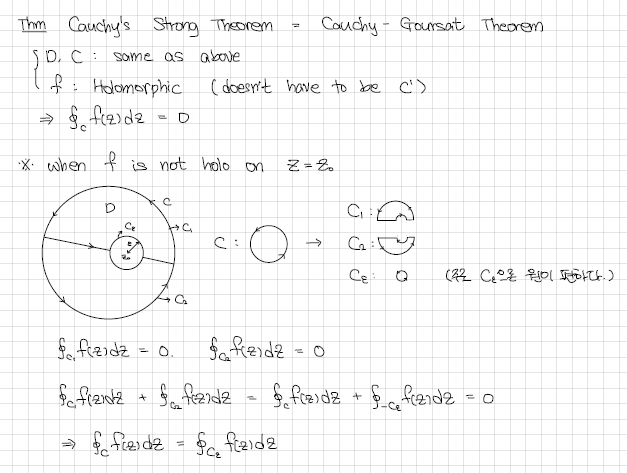 Thm Cauchy's Strong Theorem = Cauchy - Goursat Theorem
D, C : same as above
f : Holomorphic (doesn't have to be C')
⇒ ∮_C f(z)dz = 0
※ when f is not holo on z=z₀
D C C_ε C₁
ε z₀
C₂
C : →
C₁ :
C₂ :
C_ε : (C_ε으로 원이)
∮_C₁ f(z)dz = 0. ∮_C₂ f(z)dz = 0
∮_C₁ f(z)dz + ∮_C₂ f(z)dz = ∮_C f(z)dz + ∮_-C_ε f(z)dz = 0
⇒ ∮_C f(z)dz = ∮_C_ε f(z)dz